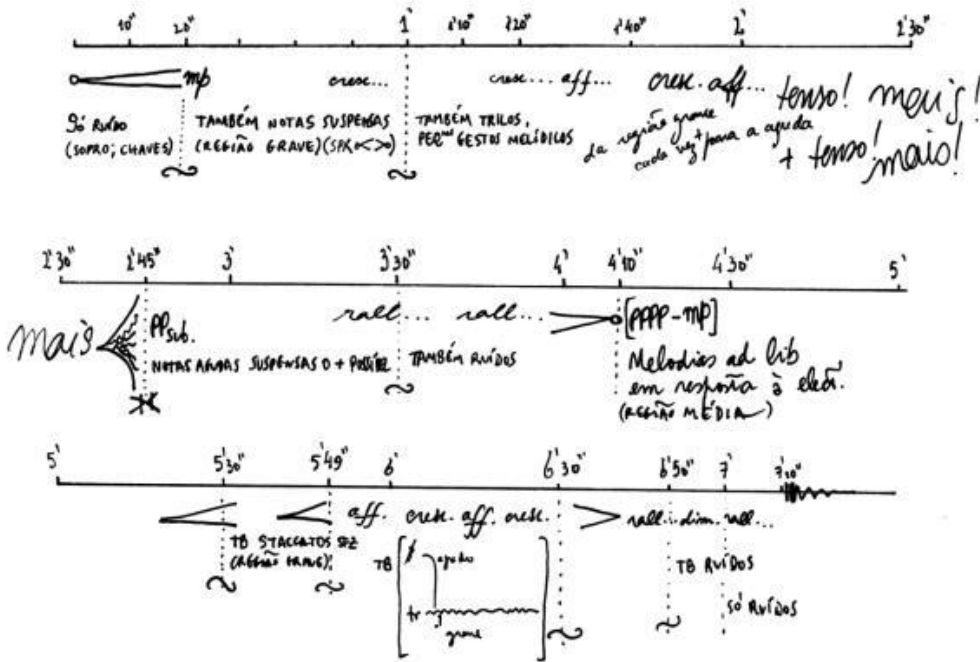 10" 20" 1' 1'10" 1'20" 1'40" 2' 2'30"
mp cresc... cresc... aff... cresc. aff... tenso! mais!
SÓ RUÍDO
(SOPRO; CHAVES)
TAMBÉM NOTAS SUSPENSAS
(REGIÃO GRAVE)
TAMBÉM TRILOS,
GESTOS MELÓDICOS
da região grave
cada vez + para a aguda
+ tenso! mais!
2'30" 2'45" 3' 3'30" 4' 4'10" 4'30" 5'
mais PP sub. rall... rall... [PPPP-mp]
NOTAS AGUDAS SUSPENSAS O + POSSÍVEL
TAMBÉM RUÍDOS
Melodias ad lib
em resposta à
(REGIÃO MÉDIA)
5' 5'30" 5'49" 6' 6'30" 6'50" 7' 7'10"
aff. cresc. aff. cresc. rall... dim. rall...
TB STACCATOS SFZ
(REGIÃO GRAVE)
TB agudo
tr
grave
TB RUÍDOS
SÓ RUÍDOS